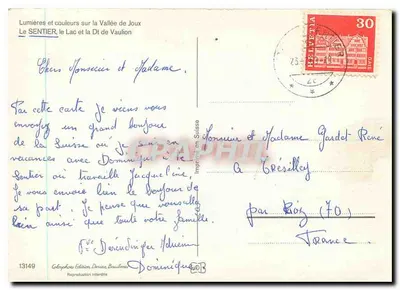 Lumières et couleurs sur la Vallée de Joux
Le SENTIER, le Lac et la Dt de Vaulion
Chers Monsieur et Madame.
Par cette carte Je viens vous
envoyer un grand bonjour
de la Suisse où Je suis en
vacances avec Dominique. Le
Sentier où travaille Jacqueline,
Je vous envoie bien le bonjour de
sa part. Je pense que vous allez
bien ainsi que toute votre famille.
Dominique
13149
Reproduction interdite
HELVETIA
30
Imprimé en Suisse
Monsieur et Madame Gardet René
à Trésilley
par Rioz (70)
France